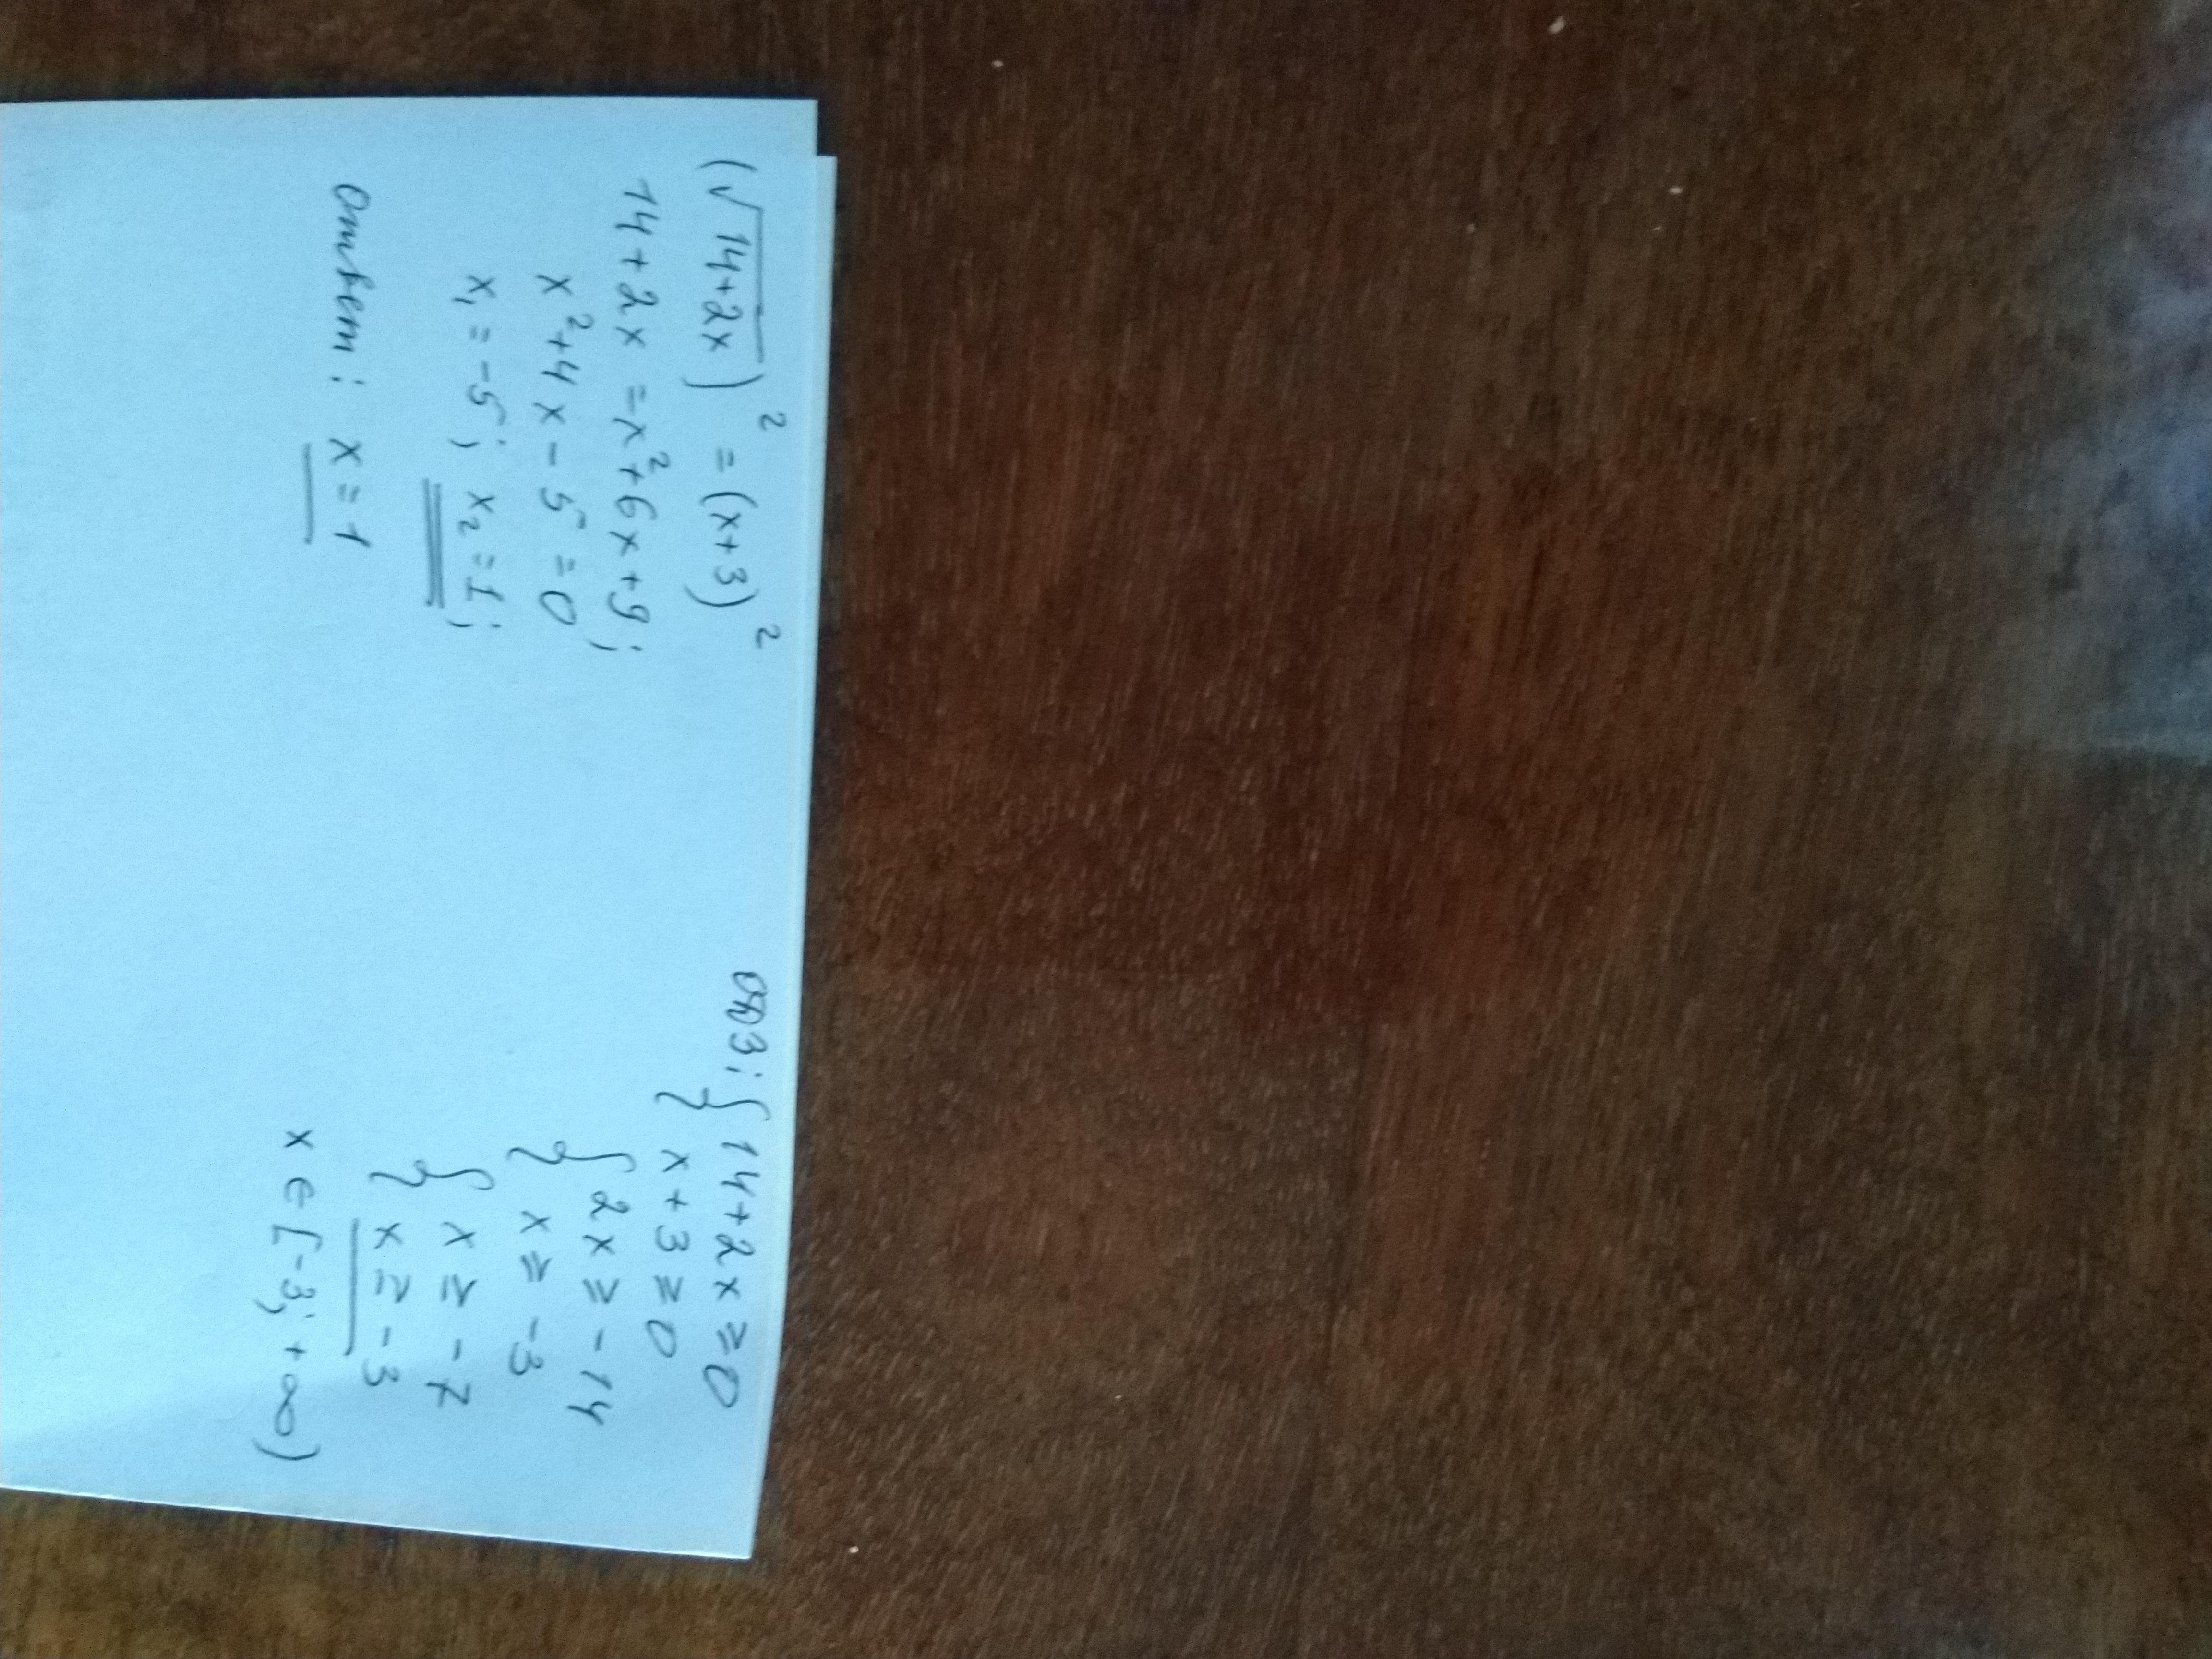 (√14+2x)² = (x+3)²
14+2x = x²+6x+9;
x²+4x-5=0
x₁=-5; x₂=1;
Ответ: x=1
ОДЗ: { 14+2x ≥ 0
x+3 ≥ 0
{ 2x ≥ -14
x ≥ -3
{ x ≥ -7
x ≥ -3
x ∈ [-3; +∞)